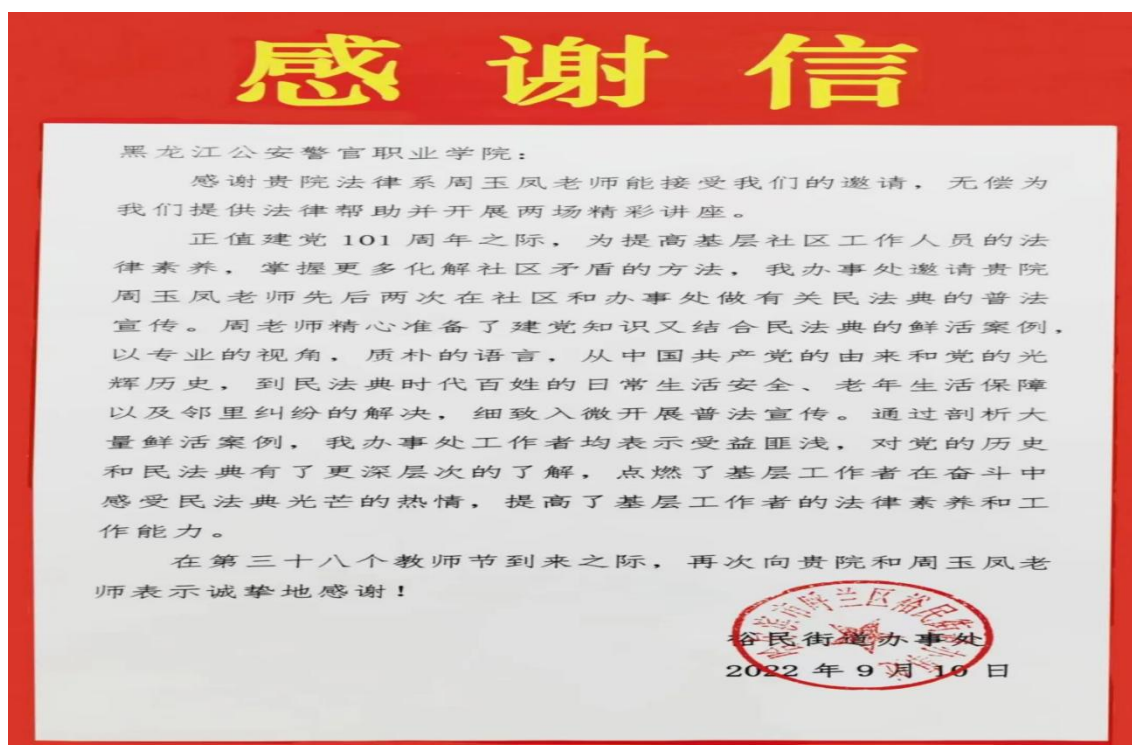 感谢信
黑龙江公安警官职业学院：
感谢贵院法律系周玉凤老师能接受我们的邀请，无偿为
我们提供法律帮助并开展两场精彩讲座。
正值建党 101 周年之际，为提高基层社区工作人员的法
律素养，掌握更多化解社区矛盾的方法，我办事处邀请贵院
周玉凤老师先后两次在社区和办事处做有关民法典的普法
宣传。周老师精心准备了建党知识又结合民法典的鲜活案例，
以专业的视角，质朴的语言，从中国共产党的由来和党的光
辉历史，到民法典时代百姓的日常生活安全、老年生活保障
以及邻里纠纷的解决，细致入微开展普法宣传。通过剖析大
量鲜活案例，我办事处工作者均表示受益匪浅，对党的历史
和民法典有了更深层次的了解，点燃了基层工作者在奋斗中
感受民法典光芒的热情，提高了基层工作者的法律素养和工
作能力。
在第三十八个教师节到来之际，再次向贵院和周玉凤老
师表示诚挚地感谢！
裕民街道办事处
2022 年 9 月 10 日